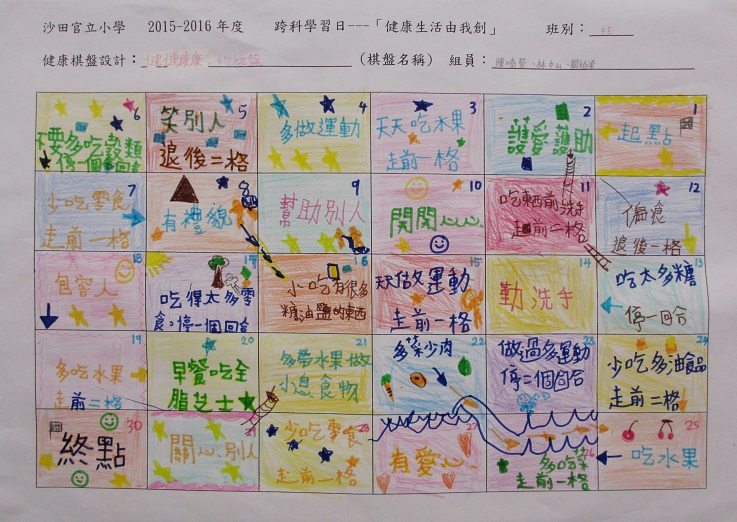 沙田官立小學 2015-2016 年度 跨科學習日---「健康生活由我創」 班別：
健康棋盤設計： (棋盤名稱) 組員：
6
不要多吃穀類
停一個回合
5
笑別人
退後二格
4
多做運動
3
天天吃水果
走前一格
2
護愛護助
1
起點
7
少吃零食
走前一格
8
有禮貌
9
幫助別人
10
開開心心
11
吃東西前洗手
走前二格
12
偏食
退後一格
18
包容人
17
吃得太多零
食。停一個回合
16
小吃有很多
糖油鹽的東西
15
天天做運動
走前一格
14
勤洗手
13
吃太多糖
停一回合
19
多吃水果
走前二格
20
早餐吃全
脂芝士
21
多帶水果做
小息食物
22
多菜少肉
走前一格
23
做過多運動
停二個回合
24
少吃多油食品
走前二格
30
終點
29
關心別人
28
少吃零食
走前一格
27
有愛心
26
多吃菜
走前一格
25
吃水果